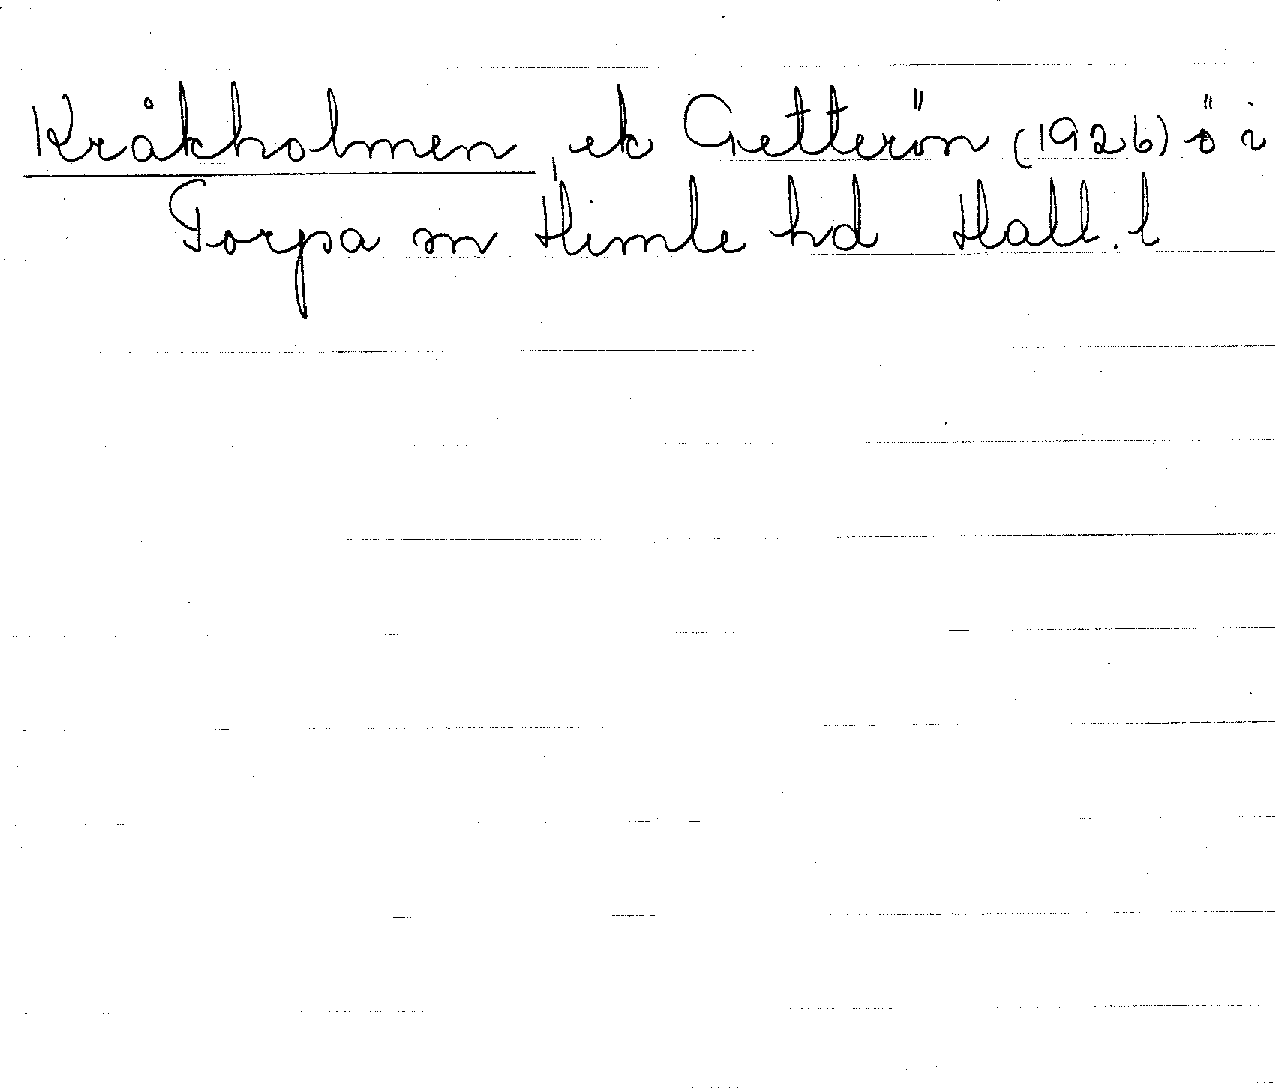 Kråkholmen, ek Getterön (1926) ö i
Torpa sn Himle hd Hall. l